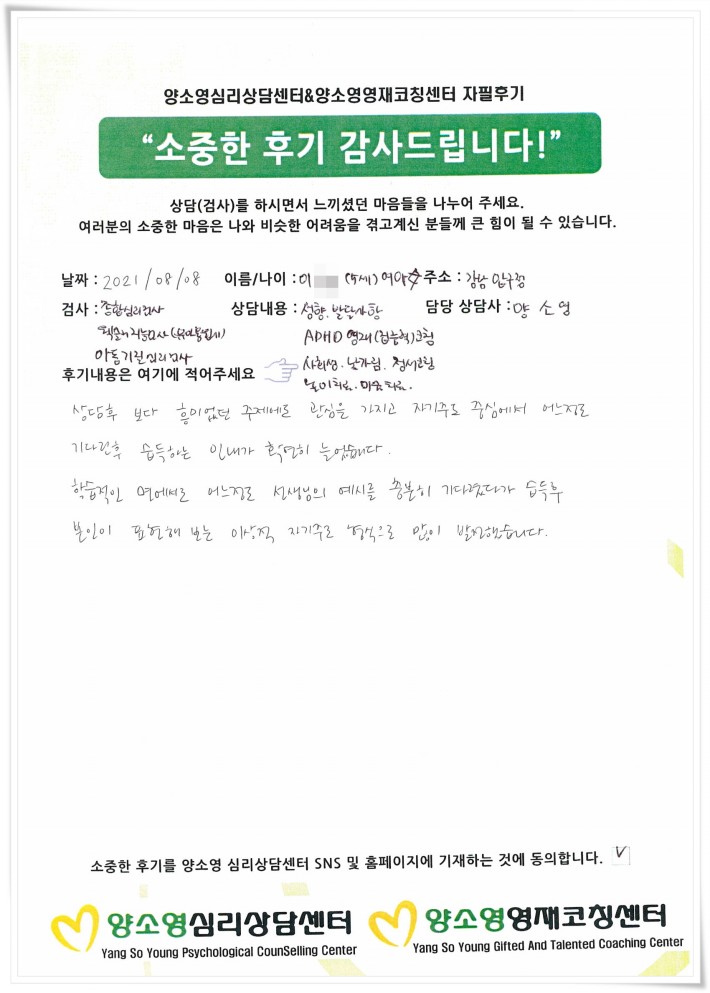 양소영심리상담센터&양소영영재코칭센터 자필후기
“소중한 후기 감사드립니다!”
상담(검사)를 하시면서 느끼셨던 마음들을 나누어 주세요.
여러분의 소중한 마음은 나와 비슷한 어려움을 겪고계신 분들께 큰 힘이 될 수 있습니다.
날짜 : 2021/08/08 이름/나이 : 이 (5세) 여아 주소 : 강남 압구정
검사 : 종합심리검사 상담내용 : 성향. 발달사항 담당 상담사 : 양소영
웩슬러지능검사 ADHD 영재(검증형)코칭
아동기질심리검사 사회성. 낯가림. 정서코칭
후기내용은 여기에 적어주세요 놀이치료. 미술치료.
상담후 보다 흥미없던 주제에도 관심을 가지고 자기주도 중심에서 어느정도
기다린후 습득하는 인내가 확연히 늘었습니다.
학습적인 면에서도 어느정도 선생님의 예시를 충분히 기다렸다가 습득후
본인이 표현해 보는 이상적 자기주도 형식으로 많이 발전했습니다.
소중한 후기를 양소영 심리상담센터 SNS 및 홈페이지에 기재하는 것에 동의합니다. V
양소영심리상담센터 양소영영재코칭센터
Yang So Young Psychological CounSelling Center Yang So Young Gifted And Talented Coaching Center